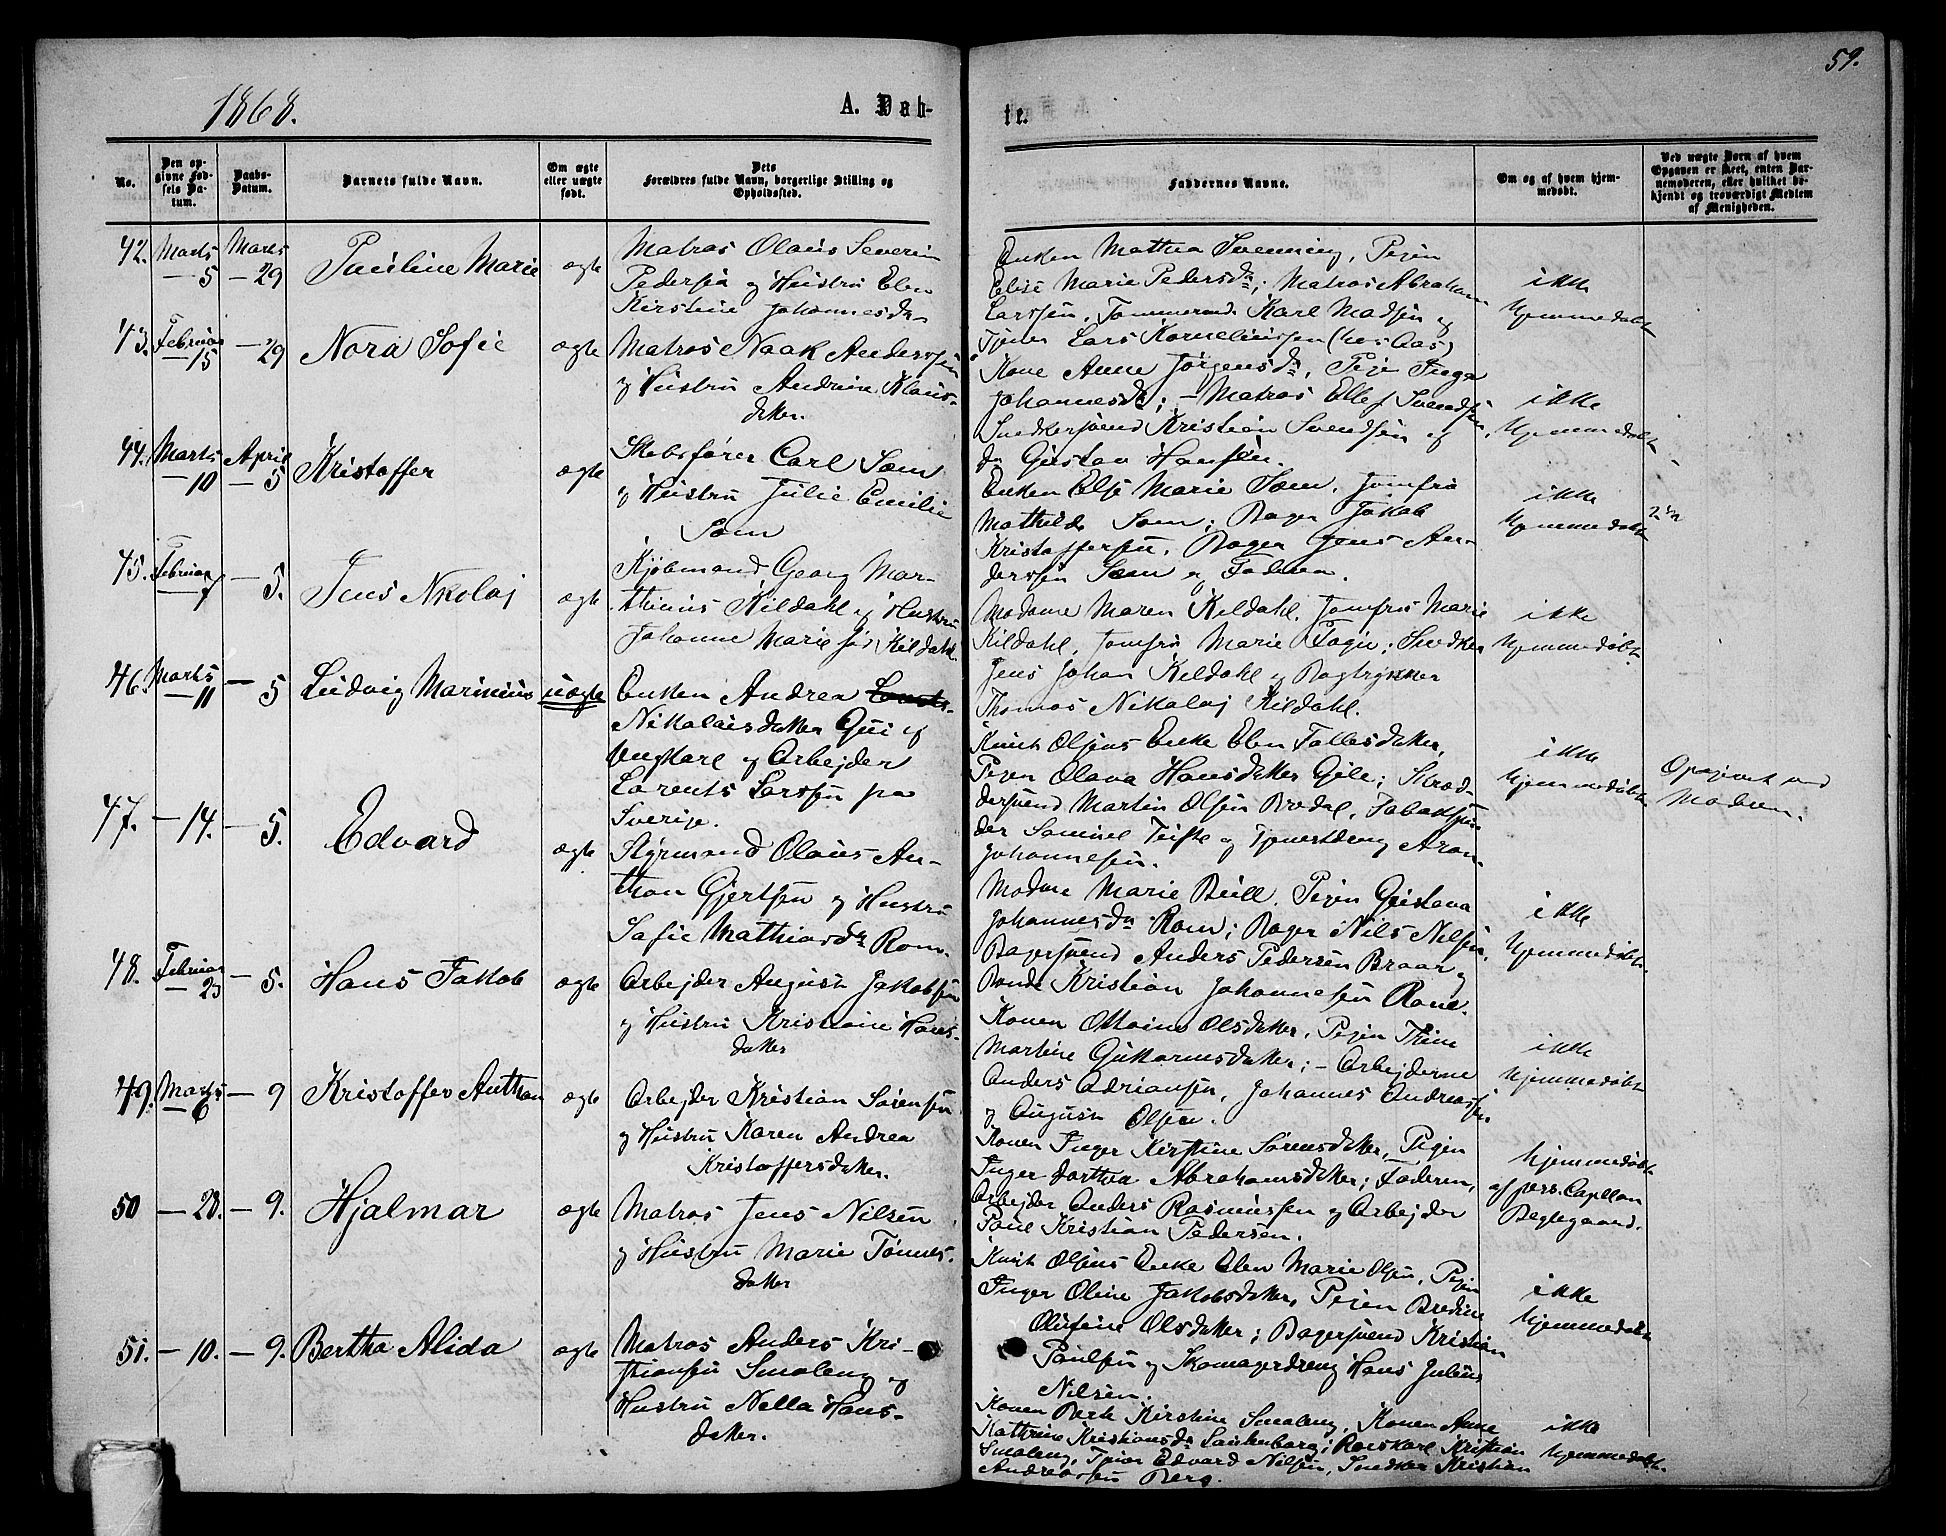 59.
1868.
A. Daab-
te.
No.
Den op-
givne Fød-
sels Da-
tum.
Daabs-
Datum.
Barnets fulde Navn.
Om ægte
eller uægte
født.
Dets
Forældres fulde Navn, borgerlige Stilling og
Opholdssted.
Faddernes Navne.
Om og af hvem hjem-
medøbt.
Ved uægte Børn af hvem
Opgaven er skeet, enten Bar-
nemoderen, eller hvilket be-
kjendt og troværdigt Medlem
af Menigheden.
42. Marts
— 5
Marts
— 29
Pauline Marie
ægte
Matros Olaus Severin
Pedersen og Hustru Elen
Kirstine Johannesda-
Enken Mathea Svenning, Pigen
Elise Marie Pedersda; Matros Abraham
Larssen, Tømmermd. Karl Madsen og
Tjener Lars Korneliussen (hos Aas)
ikke
hjemmedøbt
43. Februar
— 15
— 29
Nora Sofie
ægte
Matros Naak Anderssen
og Hustru Andrine Klaus-
datter.
Kone Anne Jørgensda, Pige Inga
Johannesda; — Matros Ellef Svendsen,
Snedkersvend Kristian Svendsen og
do Gustav Hansen.
ikke
hjemmedøbt
44. Marts
— 10
April
— 5
Kristoffer
ægte
Skibsfører Carl Søm
og Hustru Julie Emilie
Søm
Enken Else Marie Søm, Jomfru
Mathilde Søm; Bager Jakob
Kristoffersen, Bager Jens An-
derssen Søm og Faderen.
ikke
hjemmedøbt
45. Februar
7
— 5.
Jens Nikolaj
ægte
Kjøbmand Georg Mar-
thinius Kildahl og Hustru
Johanne Marie fød Kildahl.
Madame Maren Kildahl, Jomfru Marie
Kildahl, Jomfru Marie Fogn; Snedker
Jens Johan Kildahl og Bogtrykker
Thomas Nikolaj Kildahl.
ikke
hjemmedøbt
46. Marts
— 11
— 5
Ludvig Marinius
uægte
Enken Andrea
Nikolaisdatter Qui af
Ungkarl og Arbejder
Lorents Larssen fra
Sverige.
Knut Olsens Enke Elen Tollesdatter,
Pigen Olava Hansdatter Gile; Skræd-
dersvend Martin Olsen Bredal, Tobakspin-
der Samuel Teiste og Tjenestedreng Aron
Johannesen.
ikke
hjemmedøbt
Opgivet ved
Moderen.
47. — 14.
— 5.
Edvard
ægte
Styrmand Olaus An-
thon Gjertsen og Hustru
Sofie Mathiasda Rom.
Madme Marie Bull, Pigen Gustava
Johannesda Rom; Bager Nils Nilsen,
Bagersvend Anders Pedersen Braar og
Bonde Kristian Johannesen Rom.
ikke
hjemmedøbt
48. Februar
— 23
— 5.
Hans Jakob
ægte
Arbejder August Jakobsen
og Hustru Kristiane Hans-
datter
Konen Ottoine Olsdatter, Pigen Thine
Martine Guttormsdatter; — Arbejderne
Anders Adriansen, Johannes Andreassen
og August Olsen.
ikke
hjemmedøbt
49. Marts
— 6
— 9
Kristoffer Anthon
ægte
Arbejder Kristian Sørensen
og Hustru Karen Andrea
Kristoffersdatter.
Konen Inger Kirstine Sørensdatter, Pigen
Inger Dorthea Abrahamsdatter; Faderen,
Arbejder Anders Rasmussen og Arbejder
Poul Kristian Pedersen.
hjemmedøbt
af pers. Capellan
Beglegaard.
50 — 28.
— 9.
Hjalmar
ægte
Matros Jens Nilsen
og Hustru Marie Tønnes-
datter
Knut Olsens Enke Elen Marie Olsen, Pigen
Inger Oline Jakobsdatter, Pigen Bredine
Olufine Olsdatter; Bagersvend Kristian
Paulsen og Skomagerdreng Hans Julius
Nilsen.
ikke
hjemmedøbt
51. — 10.
— 9.
Bertha Alida
ægte
Matros Anders Kri-
stiansen Smaleng og
Hustru Nella Hans-
datter.
Konen Berte Kirstine Smaleng, Konen Anne
Kathrine Kristiansda Lankenborg; Baiskarl Kristian
Smaleng, Tjener Edvard Nilsen, Snedker Kristian
Andreassen Berg.
ikke
hjemmedøbt